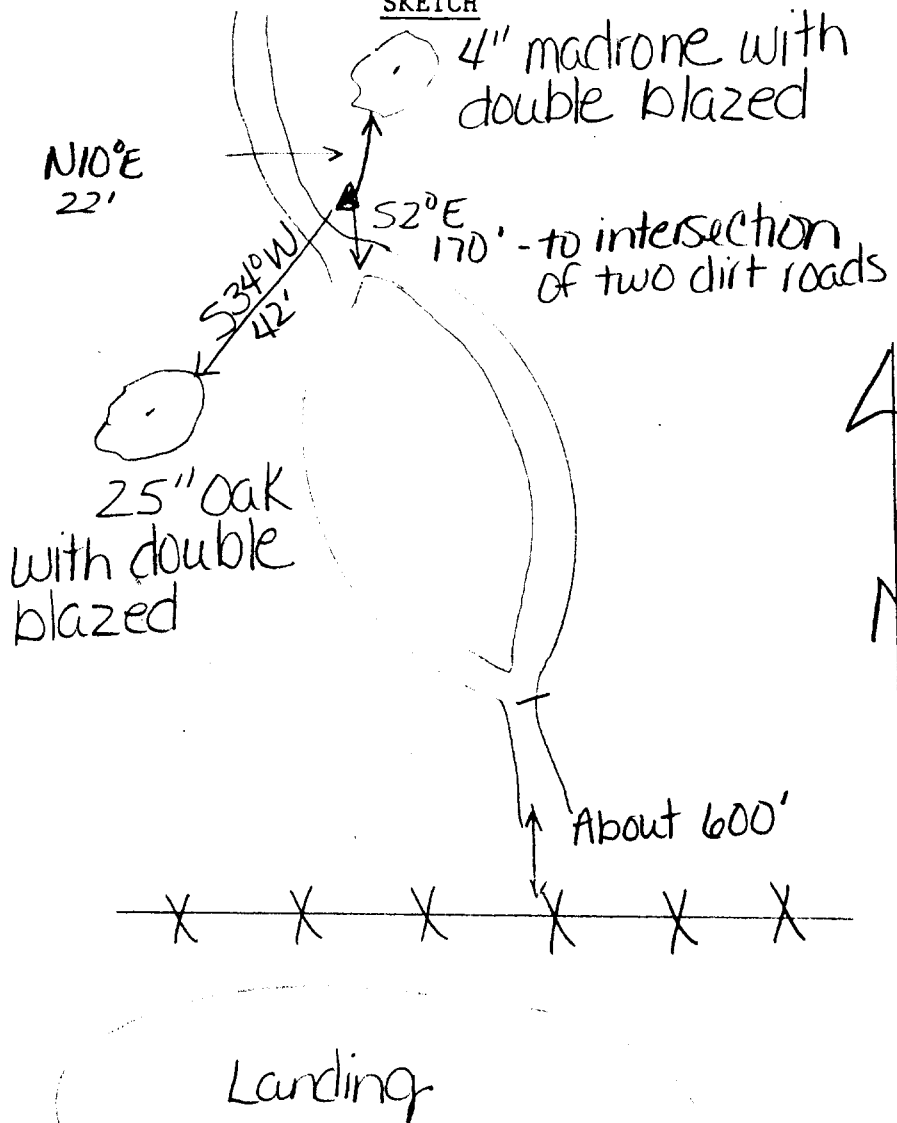 SKETCH
4" madrone with
double blazed
N10°E
22'
S2°E
170' - to intersection
of two dirt roads
S34°W
42'
25" Oak
with double
blazed
N
About 600'
X X X X X X
Landing